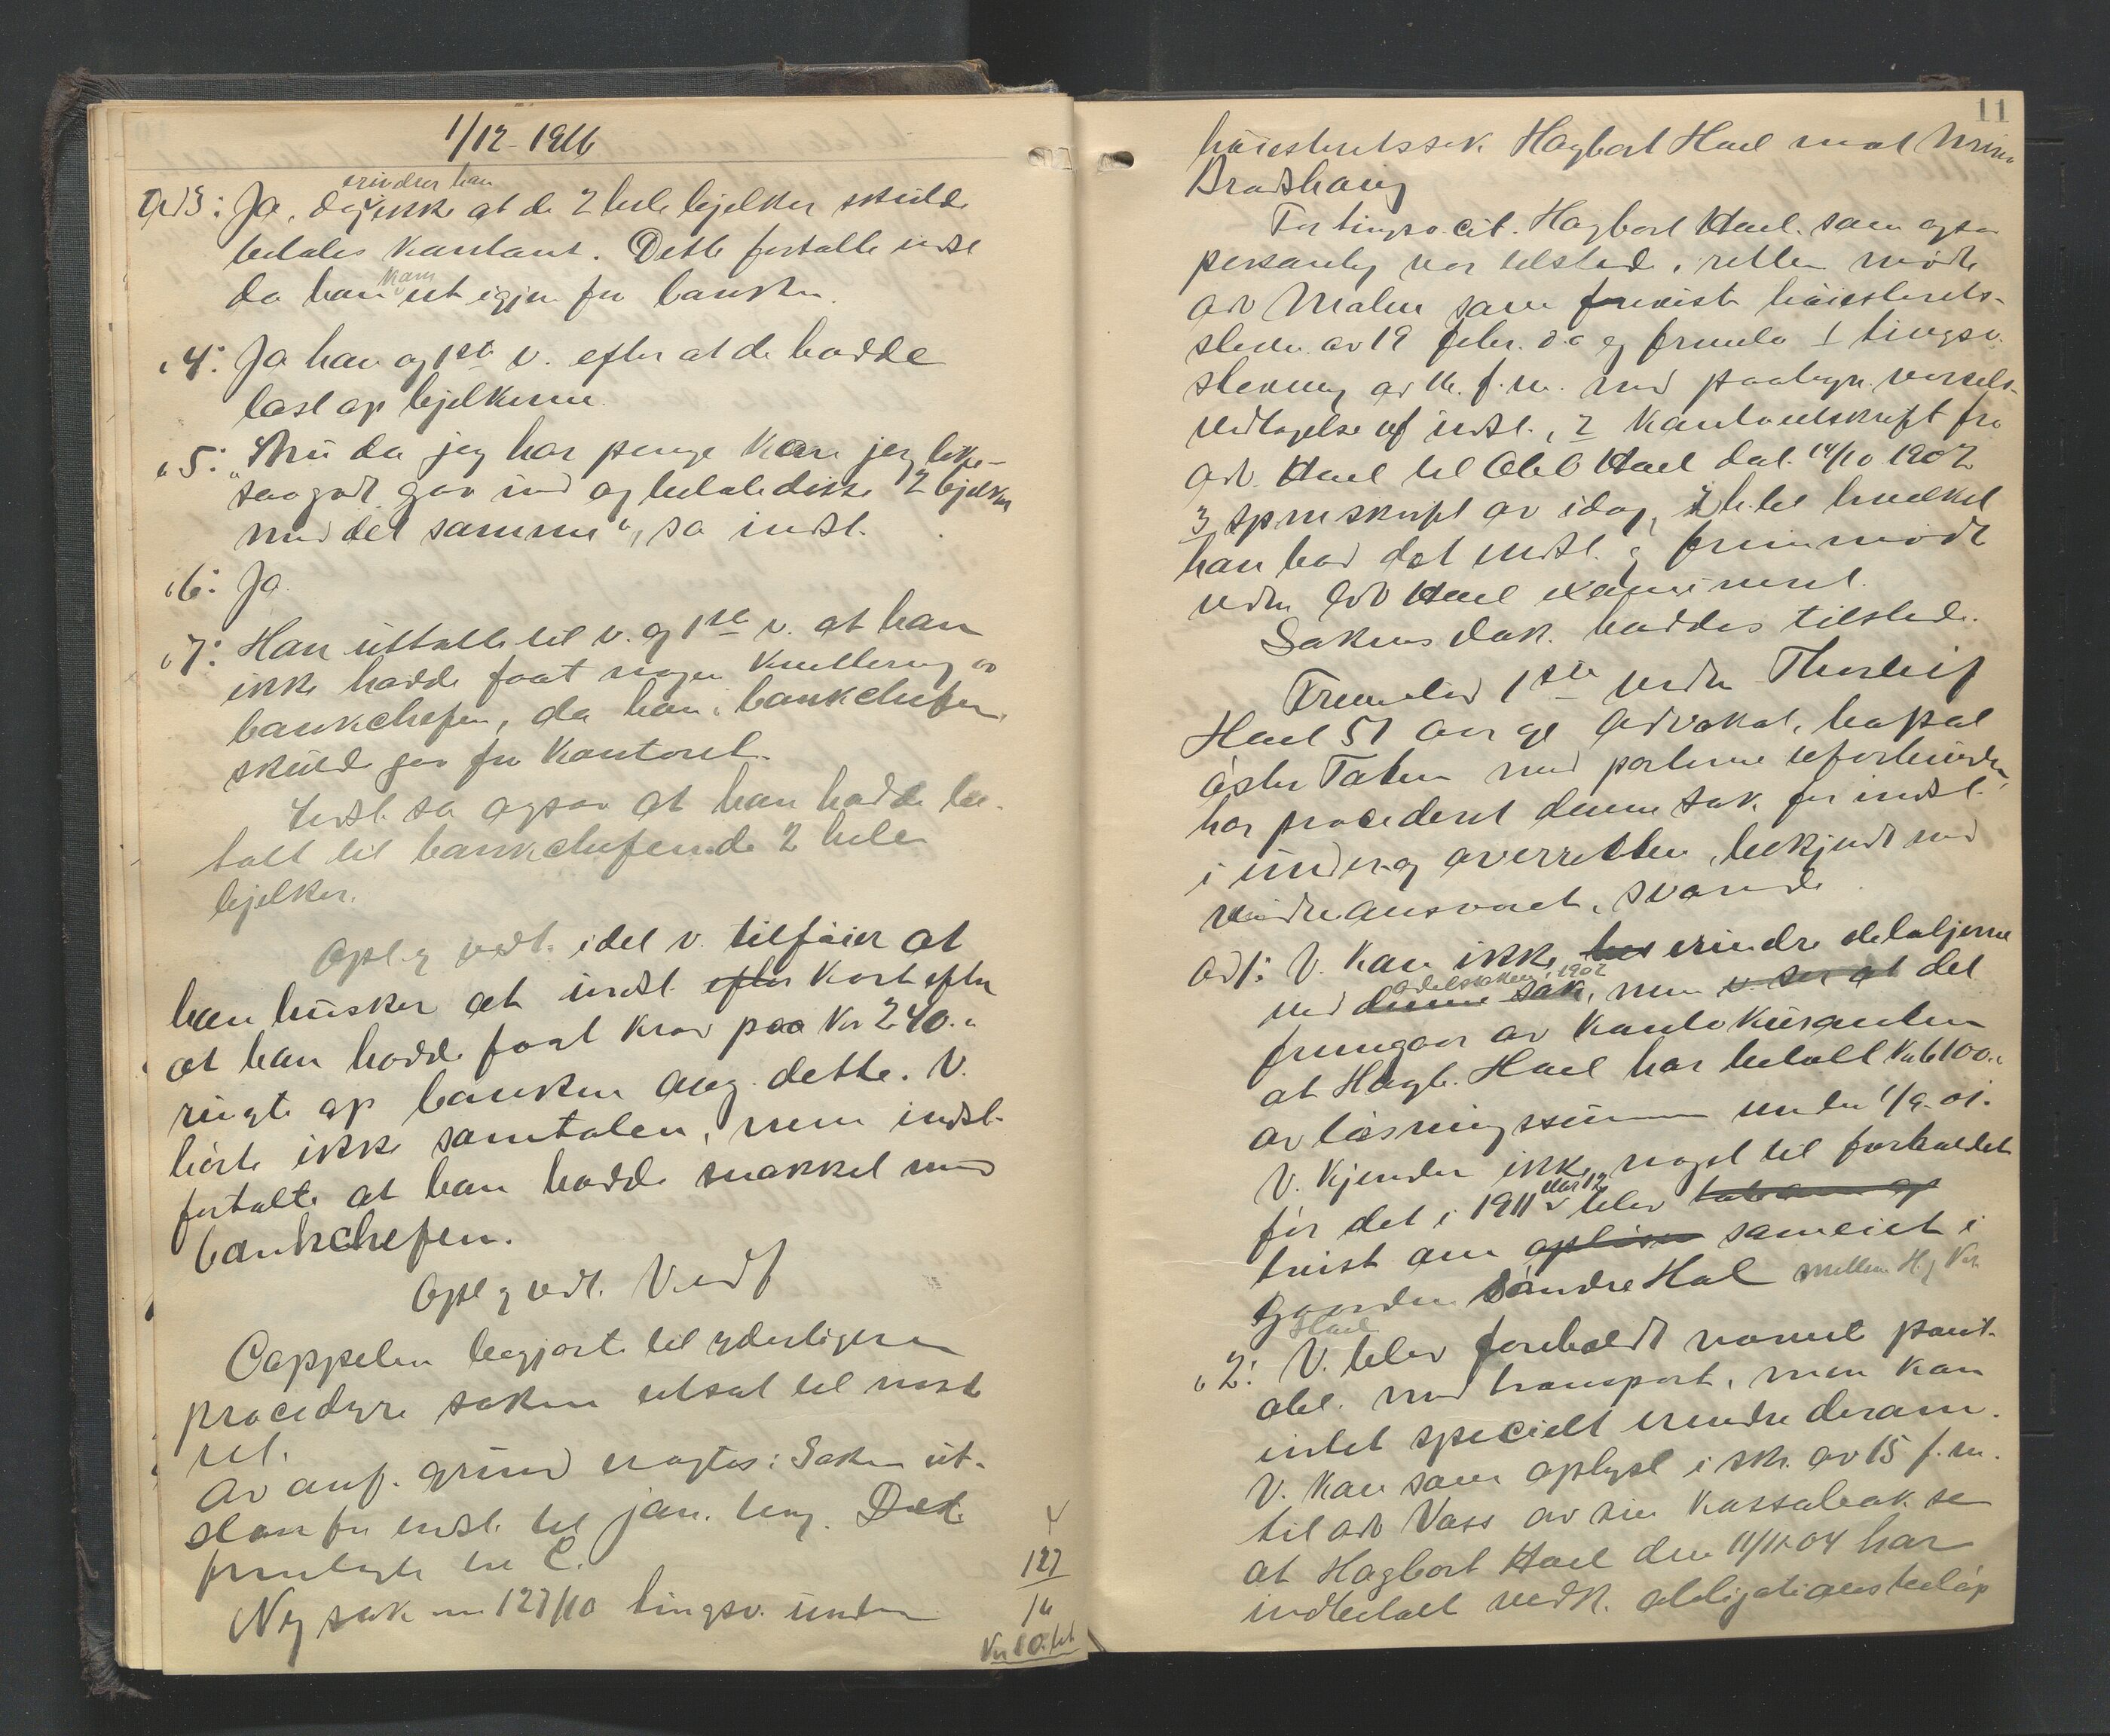 1/12-1916
Ad 3: Ja, dog erindrer han ikke at de 2 hele bjelker skulde
betales kontant. Dette fortalte indst
da han kom ut igjen fra banken.
" 4: Ja han og 1ste v. efter at de hadde
læst op bjelkerne.
" 5: "Nu da jeg har penge kan jeg like-
saa godt gaa ind og betale disse 2 bjelker
med det samme", sa indst.
" 6: Ja.
" 7: Han uttalte til v. og 1ste v. at han
ikke hadde faat nogen kvittering av
bankchefen, da han: bankchefen,
skulde gaa fra kontoret.
Indst. sa ogsaa at han hadde be-
talt til bankchefen de 2 hele
bjelker.
Opl. og vedt. idet v. tilføier at
han husker at indst. efter kort efter
at han hadde faat krav paa Kr 240.-
ringte op banken ang. dette. V.
hørte ikke samtalen, men indst.
fortalte at han hadde snakket med
bankchefen.
Opl og vedt.
Cappelen begjærte til yderligere
procedyre saken utsat til næste
ret.
Av anf. grund eragtes: Saken ut-
staar for indst. til jan. ting. Dok.
fremlagte C.
Ny sak nr 127/10 tingsv. under
4
127
16
11
høiesteretssak Hagbart Hael mot
Bradshaug
For tingsv. cit. Hagbart Hael som ogsaa
personlig var tilstede i retten mødte
adv Malm som fremviste høiesterets-
stevn. av 19 febr. d.a og fremla 1 tingsv.
stevning av f.m. med paategn. varsels-
vedtagelse af indst., 2 kontoutskrift fra
adv. Hael til Abel Hael dat. 14/10 1902
3 spmskrift av idag, i h. til hvilket
han bad indst. og fremmødt
vidne Adv Hael examineret.
Sakens dok. haddes tilstede.
Fremstod 1ste vidne Thorleif
Hael 51 aar gl advokat, bopæl
med parterne uforhindret,
har procederet denne sak for indst.
i under- og overretten, bekjendt med
vidneansvaret, svarede
Ad 1: V. kan ikke erindre detaljerne
ved denne sak odelssaken i 1902, men v. ser at det
fremgaar av kontokuranten
at Hagb. Hael har betalt Kr 6100.-
av løsningssummen under 1/9-01.
V. kjender ikke noget til forholdet
før det i 1911 eller 12 blev
tvist om sameiet i
gaarden Søndre Hal mellem H. og
Hael
" 2: V. blev foreholdt nævnte pant-
obl. med transport, men kan
intet specielt erindre derom.
V. kan som oplyst i skr. av 15 f.m.
til adv Vass av sin kassabok se
at Hagbart Hael den 11/11-04 har
indbetalt vedk. obligationsbeløp